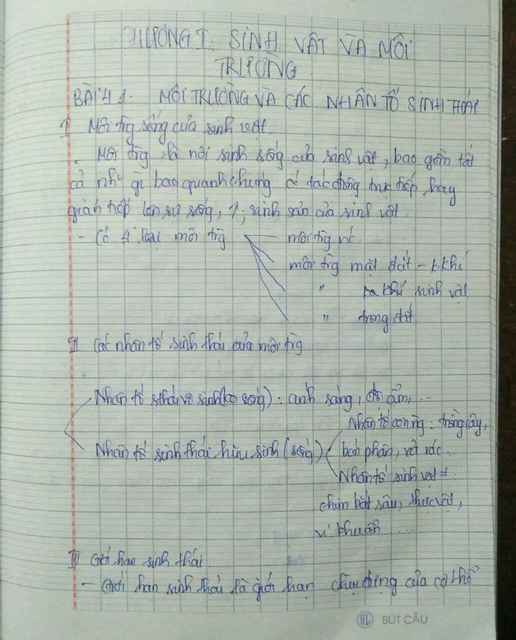 CHƯƠNG I. SINH VẬT VÀ MÔI
TRƯỜNG
BÀI 41. MÔI TRƯỜNG VÀ CÁC NHÂN TỐ SINH THÁI
I Môi trg sống của sinh vật.
Môi trg là nơi sinh sống của sinh vật, bao gồm tất
cả những gì bao quanh chúng có tác động trực tiếp hay
gián tiếp lên sự sống, sinh sản của sinh vật.
- Có 4 loại môi trg môi trg nc
môi trg mặt đất - k khí
" sinh vật
" trong đất
II Các nhân tố sinh thái của môi trg
Nhân tố sthái vô sinh (ko sống): ánh sáng, độ ẩm, ...
Nhân tố con ng: trồng cây,
Nhân tố sinh thái hữu sinh (sống) bón phân, vứt rác...
Nhân tố sinh vật
chim bắt sâu, thực vật,
vi khuẩn ...
III Giới hạn sinh thái
- Giới hạn sinh thái là giới hạn chịu đựng của cơ thể
BÚT CẦU